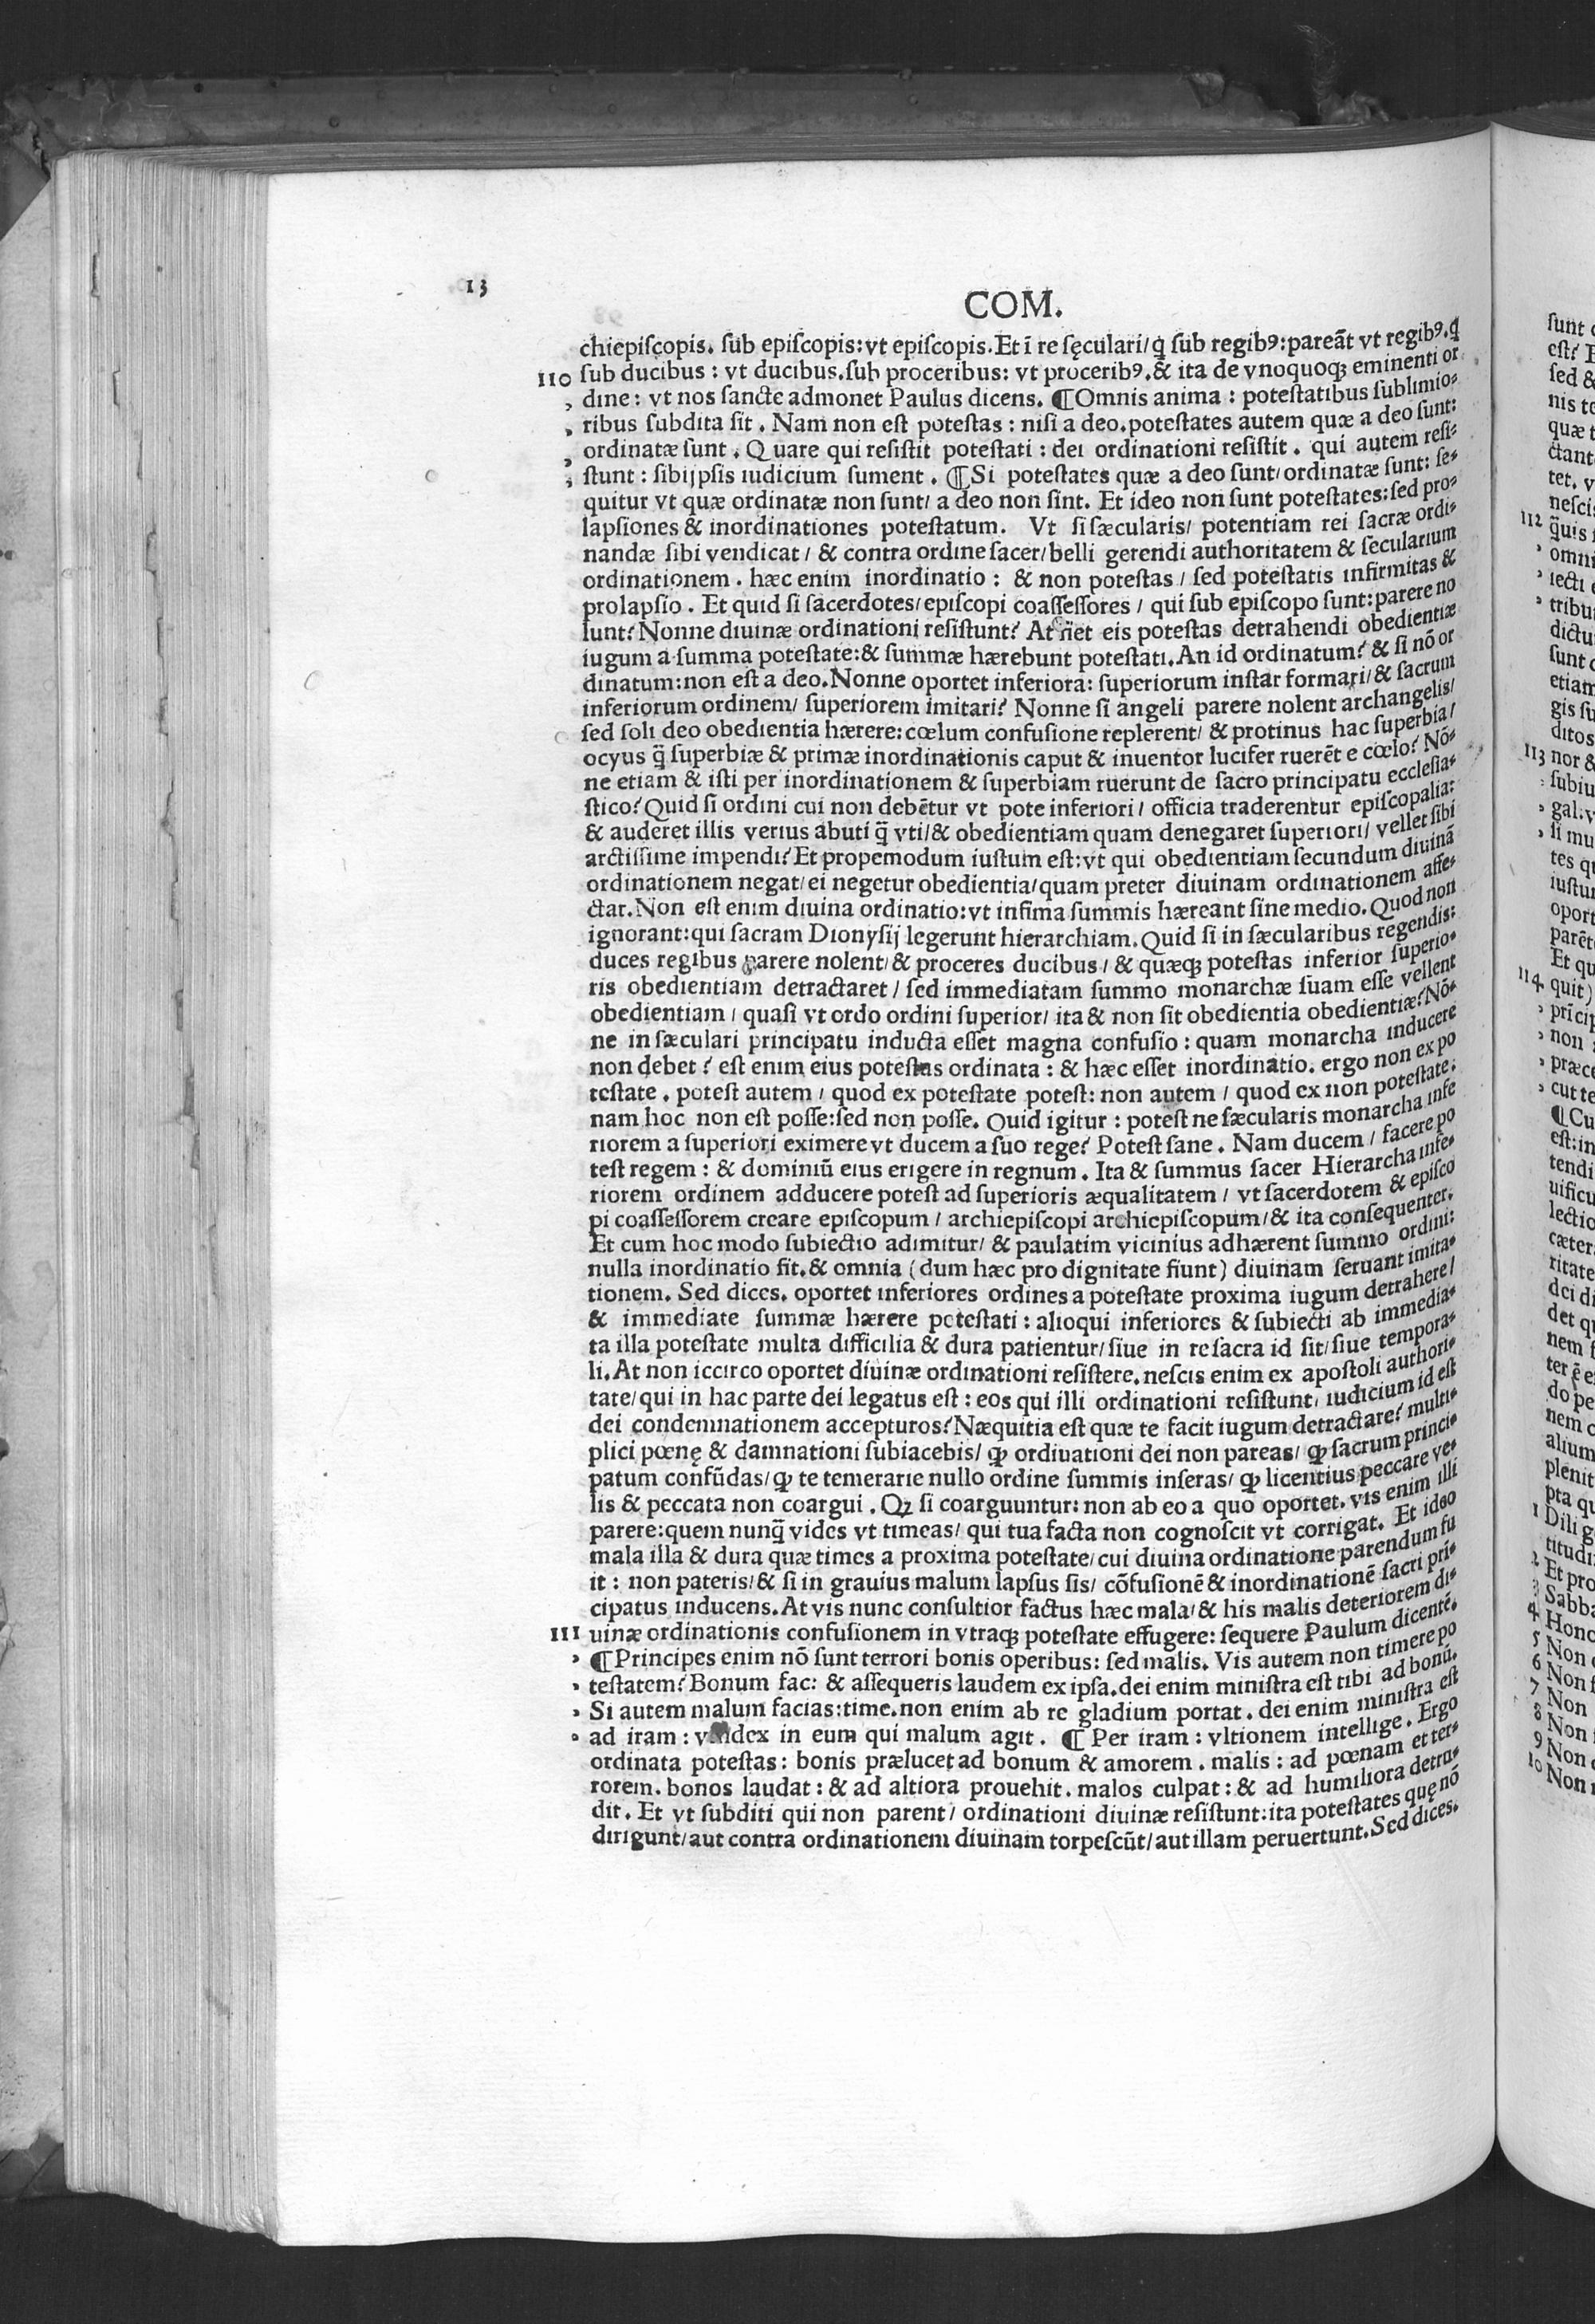 13
COM.
chiepiſcopis. ſub epiſcopis: vt epiſcopis. Et ī re ſęculari/ q̨ ſub regibꝰ: pareāt vt regibꝰ. q̨
110 ſub ducibus : vt ducibus. ſub proceribus: vt proceribꝰ. & ita de vnoquoqꝫ eminenti or
, dine: vt nos ſancte admonet Paulus dicens. ¶ Omnis anima : poteſtatibus ſublimio⸗
, ribus ſubdita ſit . Nam non eſt poteſtas : niſi a deo. poteſtates autem quæ a deo ſunt:
, ordinatæ ſunt . Quare qui reſiſtit poteſtati : dei ordinationi reſiſtit . qui autem reſi⸗
, ſtunt : ſibijpſis iudicium ſument . ¶ Si poteſtates quæ a deo ſunt/ ordinatæ ſunt: ſe⸗
quitur vt quæ ordinatæ non ſunt/ a deo non ſint. Et ideo non ſunt poteſtates: ſed pro⸗
lapſiones & inordinationes poteſtatum. Vt ſi ſæcularis/ potentiam rei ſacræ ordi⸗
nandæ ſibi vendicat / & contra ordine ſacer/ belli gerendi authoritatem & ſecularium
ordinationem . hæc enim inordinatio : & non poteſtas / ſed poteſtatis infirmitas &
prolapſio . Et quid ſi ſacerdotes/ epiſcopi coaſſeſſores / qui ſub epiſcopo ſunt: parere no
lunt? Nonne diuinæ ordinationi reſiſtunt? At eis poteſtas detrahendi obedientiæ
iugum a ſumma poteſtate: & ſummæ hærebunt poteſtati. An id ordinatum? & ſi nō or
dinatum: non eſt a deo. Nonne oportet inferiora: ſuperiorum inſtar formari/ & ſacrum
inferiorum ordinem/ ſuperiorem imitari? Nonne ſi angeli parere nolent archangelis/
ſed ſoli deo obedientia hærere: cœlum confuſione replerent/ & protinus hac ſuperbia/
ocyus q̄ ſuperbiæ & primæ inordinationis caput & inuentor lucifer ruerēt e cœlo? Nō⸗
ne etiam & iſti per inordinationem & ſuperbiam ruerunt de ſacro principatu eccleſia⸗
ſtico? Quid ſi ordini cui non debētur vt pote inferiori / officia traderentur epiſcopalia:
& auderet illis verius abuti q̄ vti/ & obedientiam quam denegaret ſuperiori/ vellet ſibi
arctiſſime impendi? Et propemodum iuſtum eſt: vt qui obedientiam ſecundum diuinā
ordinationem negat/ ei negetur obedientia/ quam preter diuinam ordinationem affe⸗
ctat. Non eſt enim diuina ordinatio: vt infima ſummis hæreant ſine medio. Quod non
ignorant: qui ſacram Dionyſij legerunt hierarchiam. Quid ſi in ſæcularibus regendis:
duces regibus parere nolent/ & proceres ducibus / & quæqꝫ poteſtas inferior ſuperio⸗
ris obedientiam detractaret / ſed immediatam ſummo monarchæ ſuam eſſe vellent
obedientiam / quaſi vt ordo ordini ſuperior/ ita & non ſit obedientia obedientiæ? Nō⸗
ne in ſæculari principatu inducta eſſet magna confuſio : quam monarcha inducere
non debet ? eſt enim eius poteſtas ordinata : & hæc eſſet inordinatio. ergo non ex po
teſtate . poteſt autem / quod ex poteſtate poteſt: non autem / quod ex non poteſtate.
nam hoc non eſt poſſe: ſed non poſſe. Quid igitur : poteſt ne ſæcularis monarcha infe
riorem a ſuperiori eximere vt ducem a ſuo rege? Poteſt ſane . Nam ducem / facere po
teſt regem : & dominiū eius erigere in regnum . Ita & ſummus ſacer Hierarcha infe⸗
riorem ordinem adducere poteſt ad ſuperioris æqualitatem / vt ſacerdotem & epiſco
pi coaſſeſſorem creare epiſcopum / archiepiſcopi archiepiſcopum/ & ita conſequenter.
Et cum hoc modo ſubiectio adimitur/ & paulatim vicinius adhærent ſummo ordini:
nulla inordinatio fit. & omnia (dum hæc pro dignitate fiunt) diuinam ſeruant imita⸗
tionem. Sed dices. oportet inferiores ordines a poteſtate proxima iugum detrahere/
& immediate ſummæ hærere poteſtati : alioqui inferiores & ſubiecti ab immedia⸗
ta illa poteſtate multa difficilia & dura patientur/ ſiue in re ſacra id ſit/ ſiue tempora⸗
li. At non iccirco oportet diuinæ ordinationi reſiſtere. neſcis enim ex apoſtoli authori⸗
tate/ qui in hac parte dei legatus eſt : eos qui illi ordinationi reſiſtunt/ iudicium id eſt
dei condemnationem accepturos? Næquitia eſt quæ te facit iugum detractare? multi⸗
plici pœnę & damnationi ſubiacebis/ ꝙ ordiuationi dei non pareas/ ꝙ ſacrum princi⸗
patum confūdas/ ꝙ te temerarie nullo ordine ſummis inſeras/ ꝙ licentius peccare ve⸗
lis & peccata non coargui . Qꝫ ſi coarguuntur: non ab eo a quo oportet. vis enim illi
parere: quem nunq̄ vides vt timeas/ qui tua facta non cognoſcit vt corrigat. Et ideo
mala illa & dura quæ times a proxima poteſtate/ cui diuina ordinatione parendum fu
it : non pateris/ & ſi in grauius malum lapſus ſis/ cōfuſionē & inordinationē ſacri pri⸗
cipatus inducens. At vis nunc conſultior factus hæc mala/ & his malis deteriorem di⸗
111 uinæ ordinationis confuſionem in vtraqꝫ poteſtate effugere: ſequere Paulum dicentē.
, ¶ Principes enim nō ſunt terrori bonis operibus: ſed malis. Vis autem non timere po
, teſtatem? Bonum fac: & aſſequeris laudem ex ipſa. dei enim miniſtra eſt tibi ad bonū.
, Si autem malum facias: time. non enim ab re gladium portat . dei enim miniſtra eſt
, ad iram : vindex in eum qui malum agit . ¶ Per iram : vltionem intellige . Ergo
ordinata poteſtas : bonis prælucet ad bonum & amorem . malis : ad pœnam et ter⸗
rorem. bonos laudat : & ad altiora prouehit . malos culpat : & ad humiliora detru⸗
dit . Et vt ſubditi qui non parent/ ordinationi diuinæ reſiſtunt: ita poteſtates quę nō
dirigunt/ aut contra ordinationem diuinam torpeſcūt/ aut illam peruertunt. Sed dices.